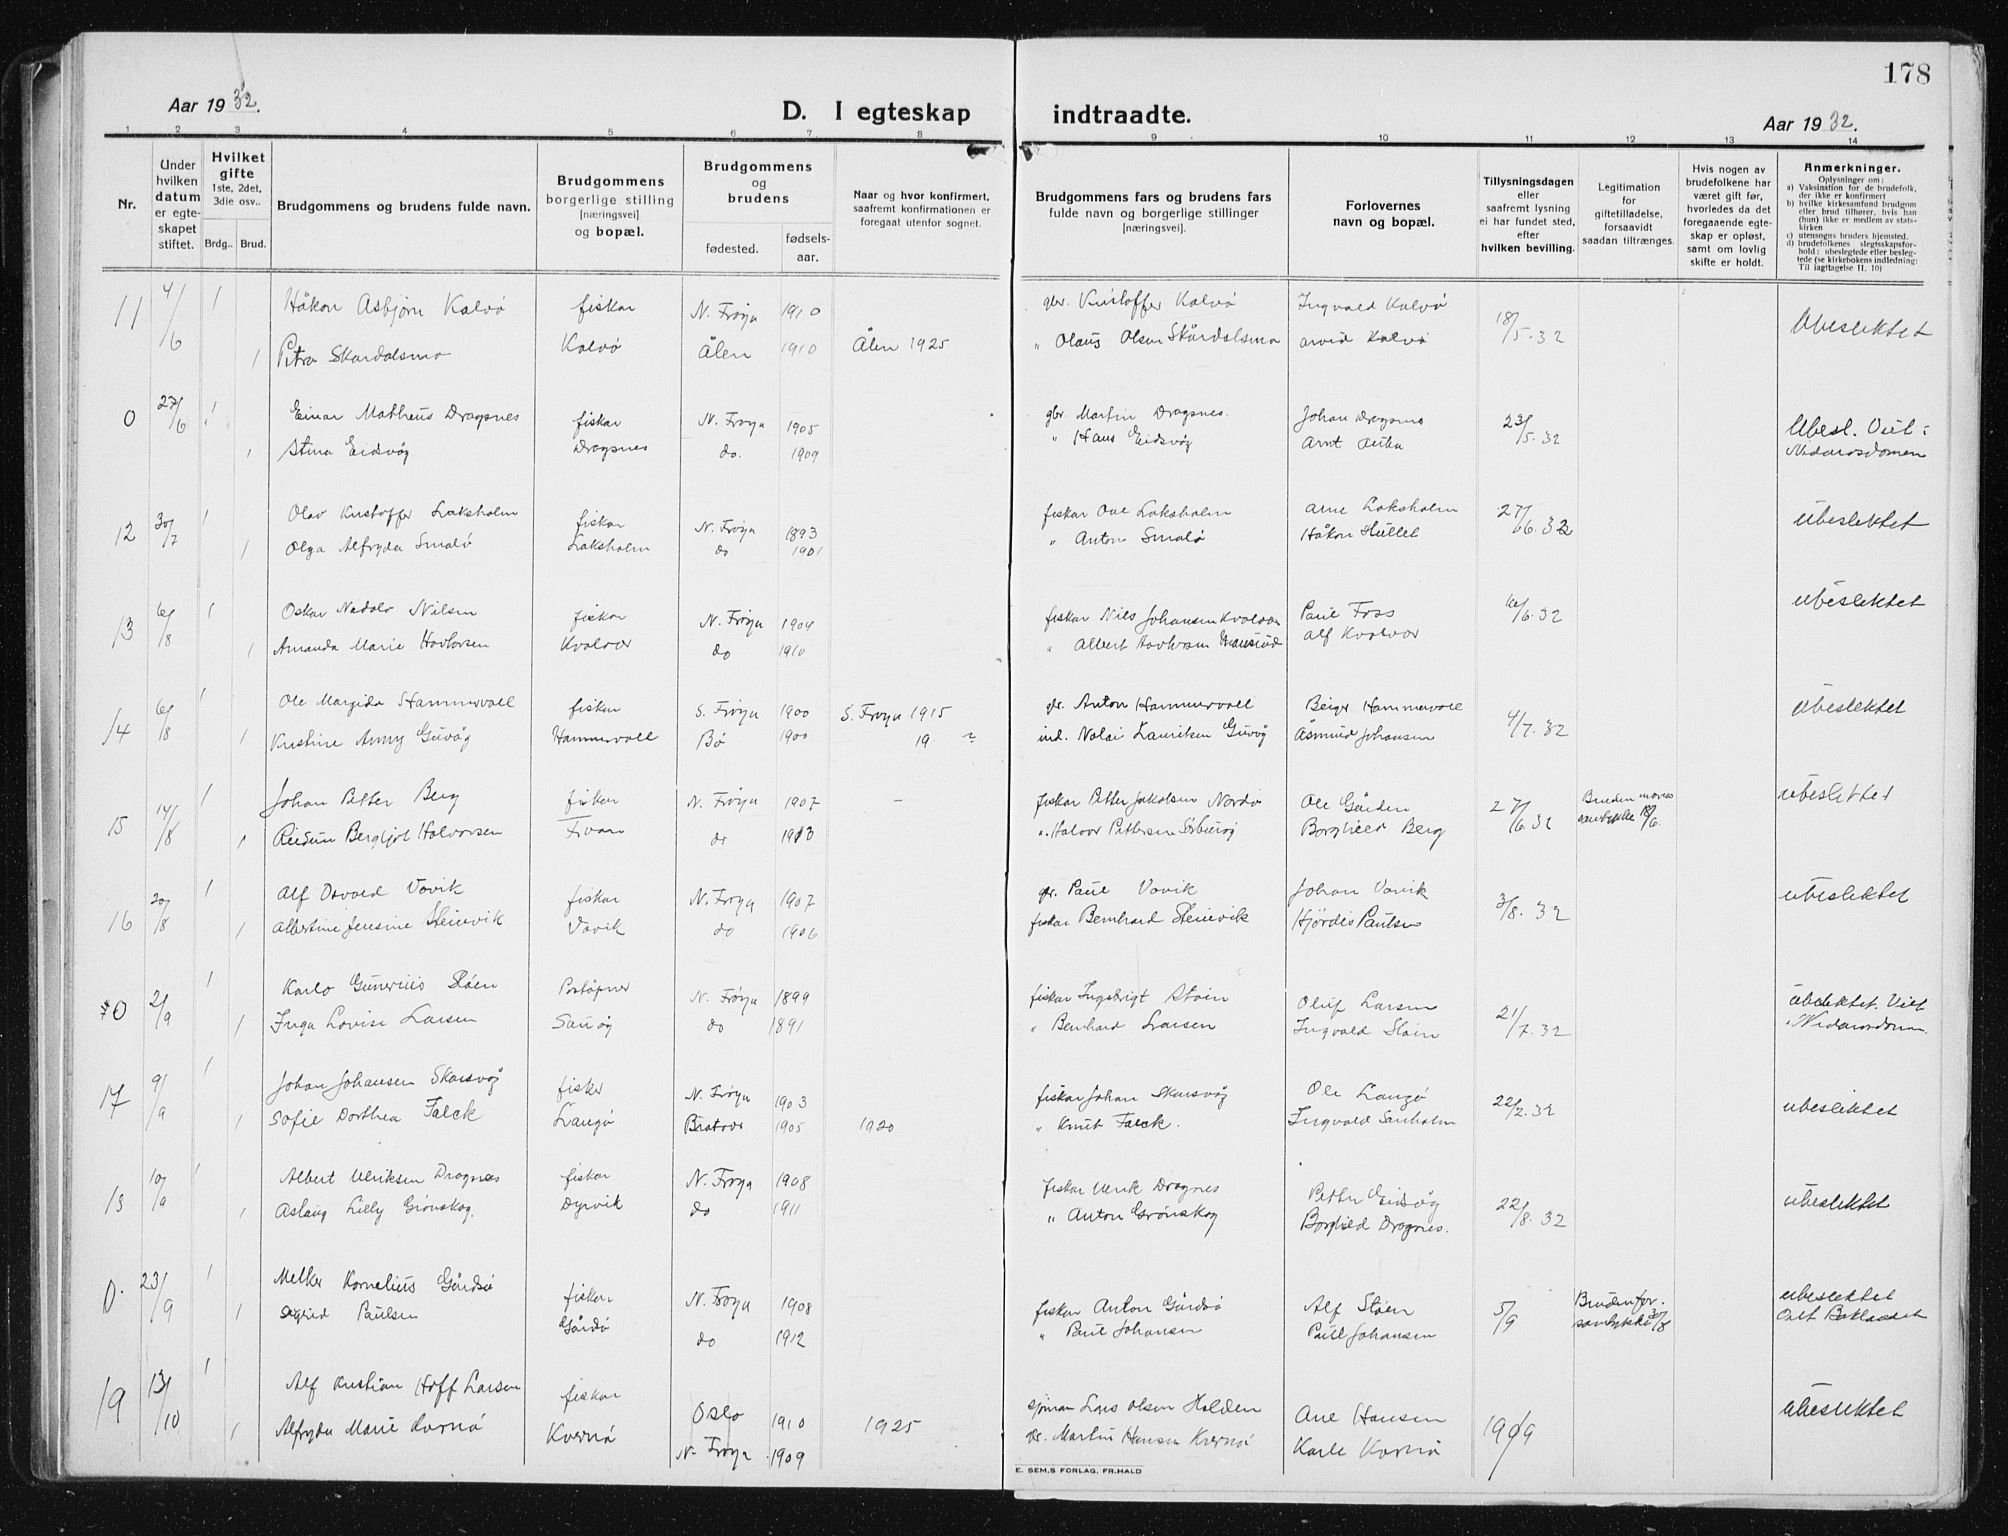 178
Aar 1932.
D. I egteskap indtraadte.
Aar 1932.
1 2 3 4 5 6 7 8 9 10 11 12 13 14
Nr.
Under hvilken datum er egteskapet stiftet.
Hvilket gifte
1ste, 2det, 3die osv..
Brdg.. Brud.
Brudgommens og brudens fulde navn.
Brudgommens borgerlige stilling [næringsvei] og bopæl.
Brudgommens og brudens
fødested. fødselsaar.
Naar og hvor konfirmert, saafremt konfirmationen er foregaat utenfor sognet.
Brudgommens fars og brudens fars fulde navn og borgerlige stillinger [næringsvei].
Forlovernes navn og bopæl.
Tillysningsdagen eller saafremt lysning ei har fundet sted, efter hvilken bevilling.
Legitimation for giftetilladelse, forsaavidt saadan tiltrænges.
Hvis nogen av brudefolkene har været gift før, hvorledes da det foregaaende egteskap er opløst, samt om lovlig skifte er holdt.
Anmerkninger.
Oplysninger om:
a) Vaksination for de brudefolk, der ikke er konfirmert
b) hvilke kirkesamfund brudgom eller brud tilhører, hvis han (hun) ikke er medlem av statskirken
c) utensogns bruders hjemsted.
d) brudefolkenes slegtsskapsforhold: ubeslegtede eller beslegtede (se kirkebokens indledning: Til iagttagelse II, 10)
11 4/6 1 Håkon Asbjørn Kalvø fiskar N. Frøya 1910 gbr. Kristoffer Kalvø Ingvald Kalvø 18/5.32 Ubeslektet
1 Petra Skårdalsmo Kalvø Ålen 1910 Ålen 1925 " Olaus Olsen Skårdalsmo Arvid Kalvø
0 27/6 1 Einar Matheus Dragsnes fiskar N. Frøya 1905 gbr. Martin Dragsnes. Johan Dragsnes 23/5.32 Ubesl. Viet i
1 Stina Eidsvåg Dragsnes do. 1909 " Hans Eidsvåg Arnt Nidarosdomen
12 30/7 1 Olav Kristoffer Laksholm fiskar N. Frøya 1893 fiskar Ove Laksholm Arne Laksholm 27/6.32 ubeslektet
1 Olga Alfryda Smalø Laksholm do 1901 " Anton Smalø Håkon Hullet
13 6/8 1 Oskar Nadolv Nilsen fiskar N. Frøya 1904 fiskar Nils Johansen Kvalvær Paul Foss /6.32 ubeslektet
1 Amanda Marie Havtorsen Kvalvær do 1910 " Albert Havtorsen Mausund Alf Kvalvær
14 6/8 1 Ole Margido Hammervoll fiskar S. Frøya 1900 S. Frøya 1915 gbr. Anton Hammervoll Birger Hammervoll 4/7.32 ubeslektet
1 Kristine Anny Guvåg Hammervoll Bø 1900 19 ? ind. Nolai Lauritsen Guvåg Åsmund Johansen
15 14/8 1 Johan Petter Berg fiskar N. Frøya 1907 – fiskar Petter Jakobsen Nordø Ole Gården 27/6.32 Bruden mores ubeslektet
1 Reidun Bergljot Halvorsen Svan do 1913 " Halvor Pettersen Sørburøy Borghild Berg samtykke 18/6.
16 20/8 1 Alf Osvald Vavik fiskar N. Frøya 1907 gbr. Paul Vavik Johan Vavik 3/8.32 ubeslektet
1 Albertine Jensine Steinvik Vavik do 1906 fiskar Bernhard Steinvik Hjørdis Paulsen
0 2/9 1 Karlo Gunerius Støen Poståpner N. Frøya 1899 fiskar Ingebrigt Støen Oluf Larsen 21/7.32 ubeslektet. Viet
1 Inga Lovise Larsen Sauøy do 1891 " Bernhard Larsen Ingvald Støen i Nidarosdomen.
17 9/9 1 Johan Johansen Skarsvåg fisker N. Frøya 1903 fiskar Johan Skarsvåg Ole Langø 22/2.32 ubeslektet
1 Sofie Dorthea Falck Langø Bratvær 1905 1920 " Knut Falck. Ingvald Sauholm
18 10/9 1 Albert Ulriksen Dragnes fiskar N. Frøya 1908 fiskar Ulrik Dragnes Petter Eidsvåg 22/8.32 ubeslektet
1 Aslaug Lilly Grønskag. Dyrvik do 1911 " Anton Grønskag Borghild Dragnes.
0. 23/9 1 Melker Kornelius Gårdsø fiskar N. Frøya 1908 fiskar Anton Gårdsø Alf Støen 5/9 Bruden far. ubeslektet
1 Sigrid Paulsen Gårdø do 1912 " Paul Johansen Paul Johansen samtykke 30/8 Bakladet
19 13/10 1 Alf Kristian Hoff Larsen fiskar Oslo 1910 1925 sjøman Lars Olsen Holden Ane Hansen 19/9 ubeslektet
1 Alfryda Marie Kvernø Kvernø N. Frøya 1909 gbr. Martin Hansen Kvernø Karle Kvernø
E. SEM,S FORLAG, FR.HALD